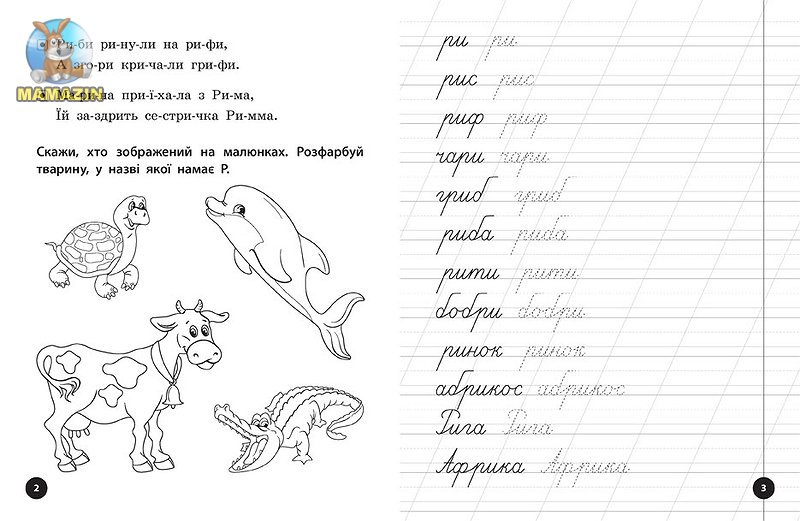 MAMAZIN
Ри-би ри-ну-ли на ри-фи,
А зго-ри кри-ча-ли гри-фи.
Ма-ри-на при-ї-ха-ла з Ри-ма,
Їй за-здрить се-стри-чка Ри-мма.
Скажи, хто зображений на малюнках. Розфарбуй
тварину, у назві якої намає Р.
2
ри ри
рис рис
риф риф
чари чари
гриб гриб
риба риба
рити рити
бобри бобри
ринок ринок
абрикос абрикос
Рига Рига
Африка Африка
3